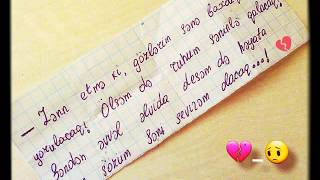 — Zənn etmə ki, gözlərim sənə baxmaq
yorulacaq! Ölsəm də ruhum səninlə qalacaq!
Səndən əvvəl əlvida desəm də həyata
sözüm Səni sevirəm olacaq...!